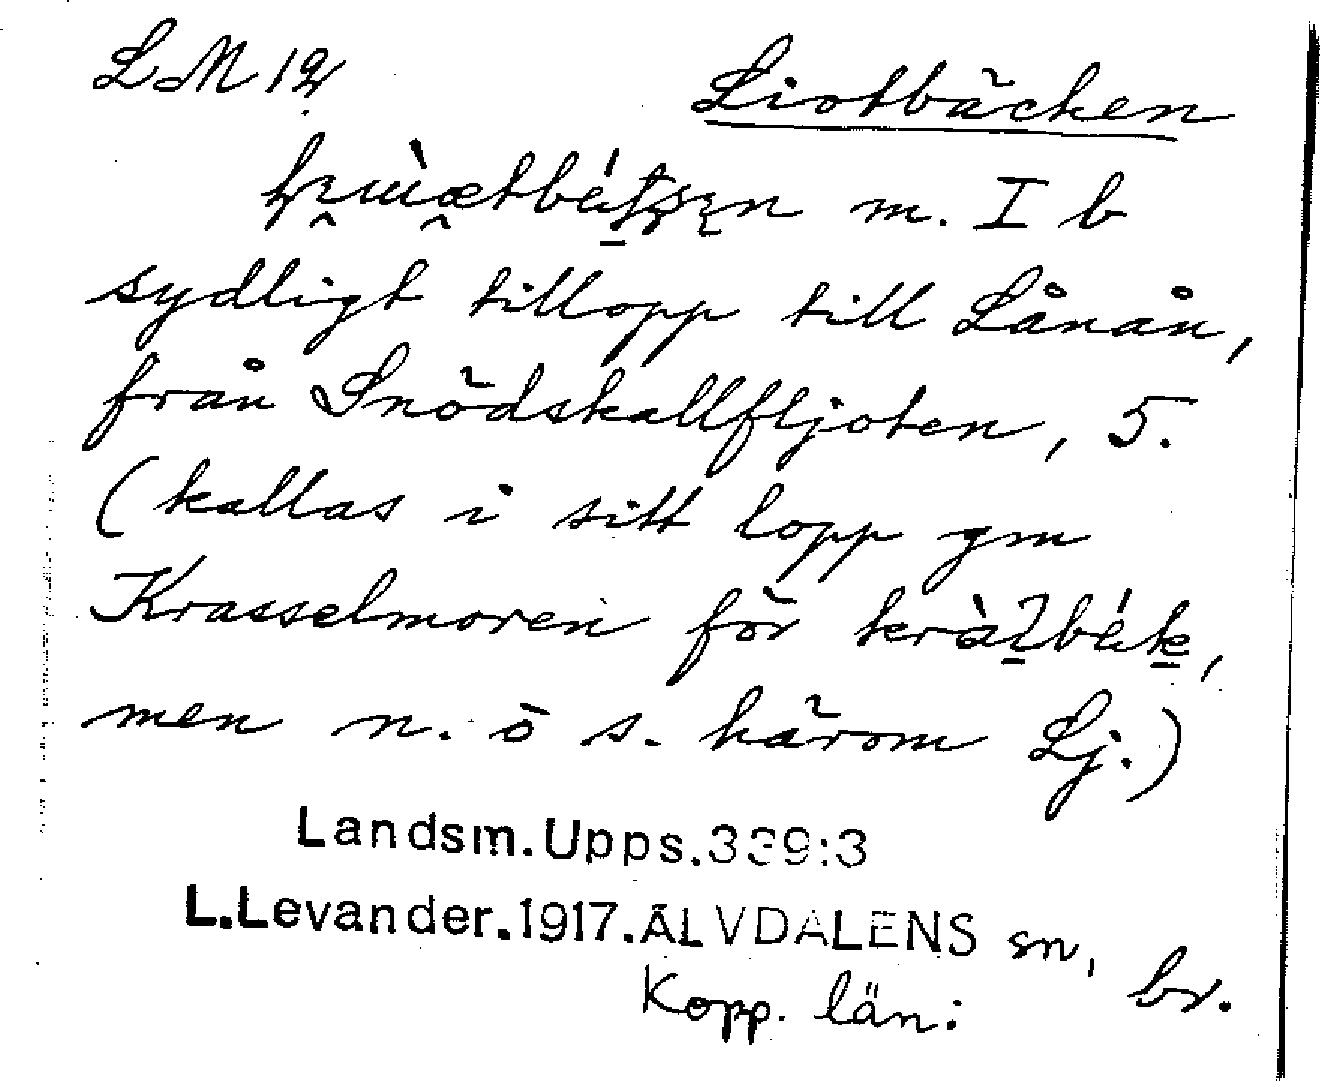 LM 12
Liotbäcken
m. I b
sydligt tillopp till Lånån,
från Snödskallfljoten, 5.
(kallas i sitt lopp gm
Krasselmoren för
men n. o s. härom Lj.)
Landsm.Upps.339:3
L.Levander.1917.ÄLVDALENS sn, br.
Kopp. län: